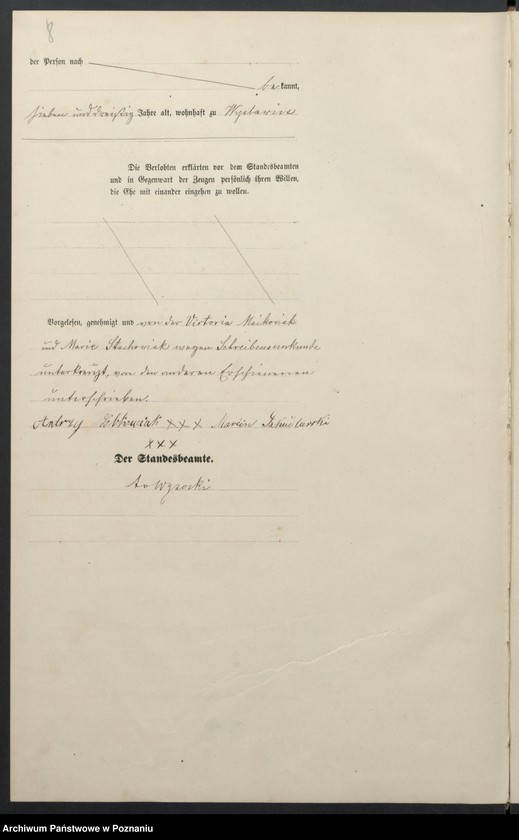 8
der Person nach
be kannt,
sieben und dreißig Jahre alt, wohnhaft zu
Die Verlobten erklärten vor dem Standesbeamten
und in Gegenwart der Zeugen persönlich ihren Willen,
die Ehe mit einander eingehen zu wollen.
Vorgelesen, genehmigt und von der Victoria
und Marie Stachowiak wegen Schreibensunkunde
unterkreuzt, von den anderen Erschienenen
unterschrieben.
Andrzy xxx Marcin
xxx
Der Standesbeamte.
Wysocki
Archiwum Państwowe w Poznaniu